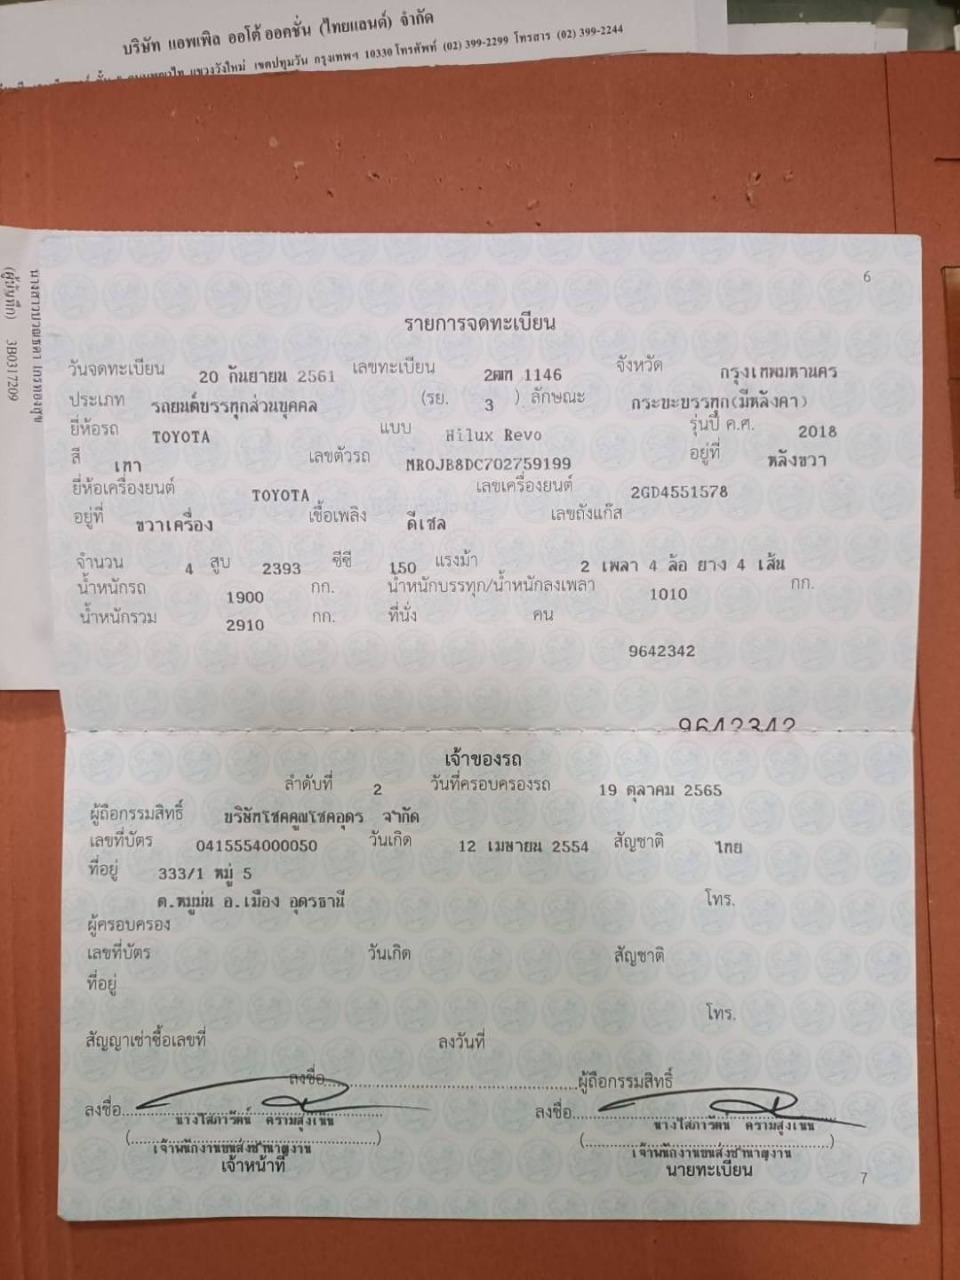 บริษัท แอพเพิล ออโต้ ออคชั่น (ไทยแลนด์) จำกัด
แขวงวังใหม่ เขตปทุมวัน กรุงเทพฯ 10330 โทรศัพท์ (02) 399-2299 โทรสาร (02) 399-2244
(ผู้บันทึก) 3B0317209
6
รายการจดทะเบียน
วันจดทะเบียน 20 กันยายน 2561 เลขทะเบียน 2ฒฑ 1146 จังหวัด กรุงเทพมหานคร
ประเภท รถยนต์บรรทุกส่วนบุคคล (รย. 3 ) ลักษณะ กระบะบรรทุก(มีหลังคา)
ยี่ห้อรถ TOYOTA แบบ Hilux Revo รุ่นปี ค.ศ. 2018
สี เทา เลขตัวรถ MR0JB8DC702759199 อยู่ที่ หลังขวา
ยี่ห้อเครื่องยนต์ TOYOTA เลขเครื่องยนต์ 2GD4551578
อยู่ที่ ขวาเครื่อง เชื้อเพลิง ดีเซล เลขถังแก๊ส
จำนวน 4 สูบ 2393 ซีซี 150 แรงม้า 2 เพลา 4 ล้อ ยาง 4 เส้น
น้ำหนักรถ 1900 กก. น้ำหนักบรรทุก/น้ำหนักลงเพลา 1010 กก.
น้ำหนักรวม 2910 กก. ที่นั่ง คน
9642342
9642342
เจ้าของรถ
ลำดับที่ 2 วันที่ครอบครองรถ 19 ตุลาคม 2565
ผู้ถือกรรมสิทธิ์ บริษัทโชคคูณโชคอุดร จำกัด
เลขที่บัตร 0415554000050 วันเกิด 12 เมษายน 2554 สัญชาติ ไทย
ที่อยู่ 333/1 หมู่ 5
ต.หมูม่น อ.เมือง อุดรธานี โทร.
ผู้ครอบครอง
เลขที่บัตร วันเกิด สัญชาติ
ที่อยู่
โทร.
สัญญาเช่าซื้อเลขที่ ลงวันที่
ลงชื่อ ผู้ถือกรรมสิทธิ์
ลงชื่อ ลงชื่อ
นางโสภารัตน์ ความสูงเนิน นางโสภารัตน์ ความสูงเนิน
เจ้าพนักงานขนส่งชำนาญงาน เจ้าพนักงานขนส่งชำนาญงาน
เจ้าหน้าที่ นายทะเบียน
7